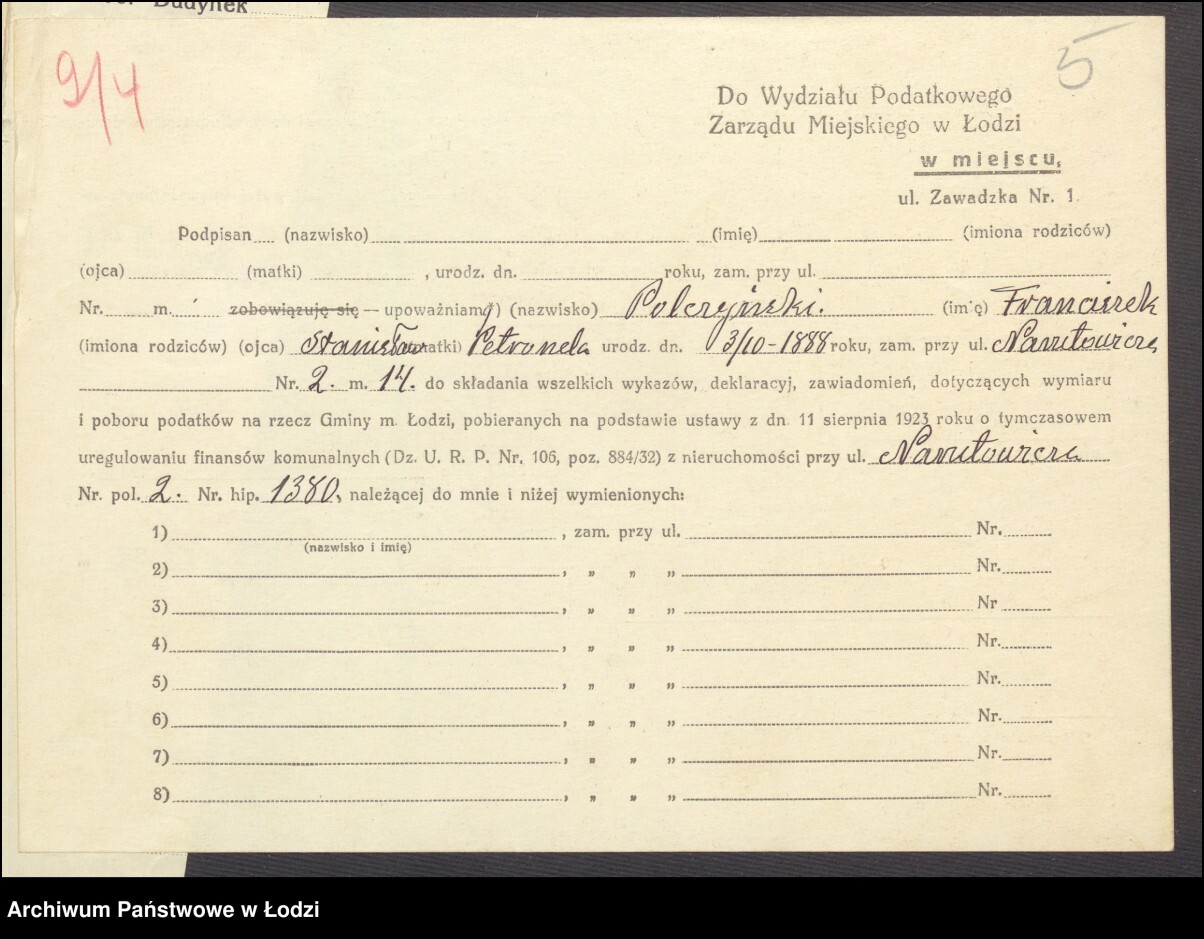 Budynek
9/4
5
Do Wydziału Podatkowego
Zarządu Miejskiego w Łodzi
w miejscu,
ul. Zawadzka Nr. 1.
Podpisan (nazwisko) (imię) (imiona rodziców)
(ojca) (matki) , urodz. dn. roku, zam. przy ul.
Nr. m. zobowiązuję się — upoważniam(y) (nazwisko) Polczyński. (imię) Franciszek
(imiona rodziców) (ojca) Stanisław (matki) Petronela urodz. dn. 3/10-1888 roku, zam. przy ul. Narutowicza
Nr. 2. m. 14. do składania wszelkich wykazów, deklaracyj, zawiadomień, dotyczących wymiaru
i poboru podatków na rzecz Gminy m. Łodzi, pobieranych na podstawie ustawy z dn. 11 sierpnia 1923 roku o tymczasowem
uregulowaniu finansów komunalnych (Dz. U. R. P. Nr. 106, poz. 884/32) z nieruchomości przy ul. Narutowicza
Nr. pol. 2. Nr. hip. 1380, należącej do mnie i niżej wymienionych:
1) , zam. przy ul. Nr.
(nazwisko i imię)
2) , „ „ „ Nr.
3) , „ „ „ Nr
4) , „ „ „ Nr.
5) , „ „ „ Nr.
6) , „ „ „ Nr.
7) , „ „ „ Nr.
8) , „ „ „ Nr.
Archiwum Państwowe w Łodzi